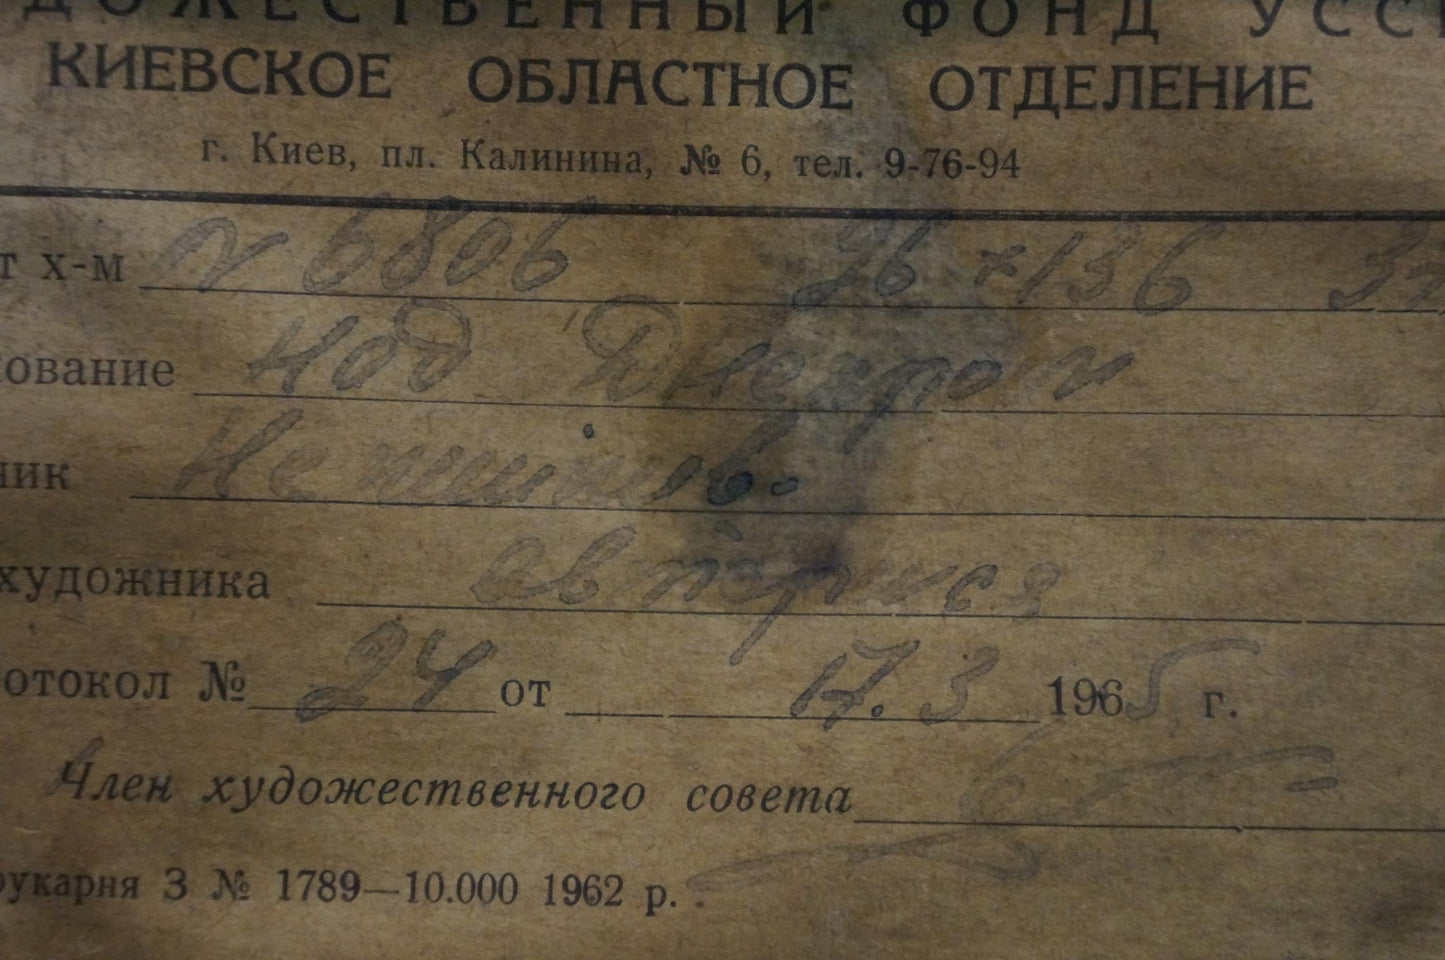 ДОЖЕСТВЕННЫЙ ФОНД УССР
КИЕВСКОЕ ОБЛАСТНОЕ ОТДЕЛЕНИЕ
г. Киев, пл. Калинина, № 6, тел. 9-76-94
т х-м № 6806 96 × 136
ование над Днепром
ник
художника авторися
отокол № 24 от 17. 3 1965 г.
Член художественного совета
рукарня З № 1789—10.000 1962 р.